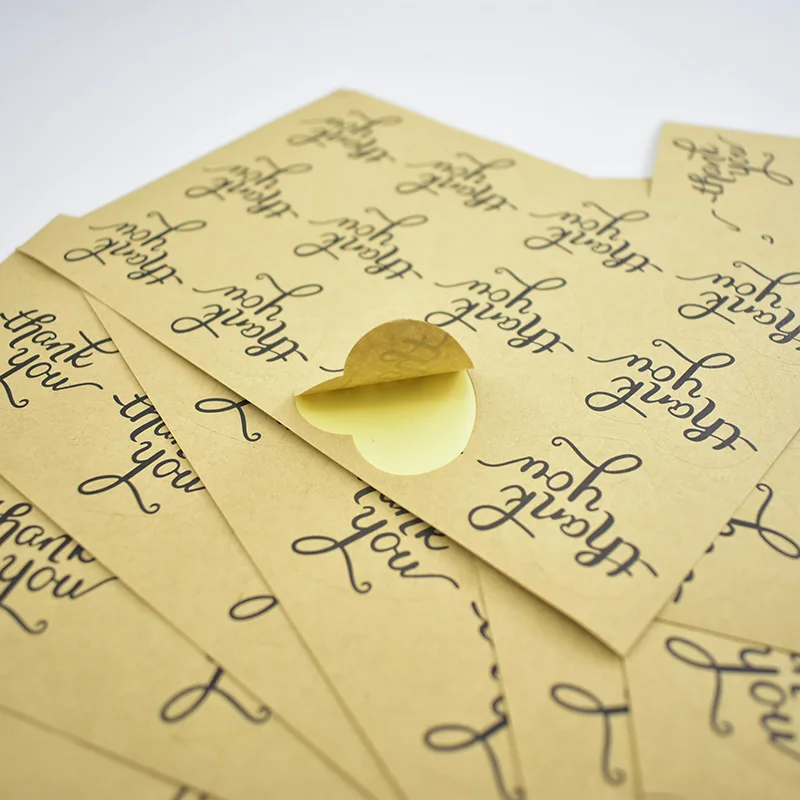 thank
you
thank
you
thank
you
thank
you
thank
you
thank
you
thank
you
thank
you
thank
you
thank
you
thank
you
thank
you
thank
you
thank
you
hank
you
you
you